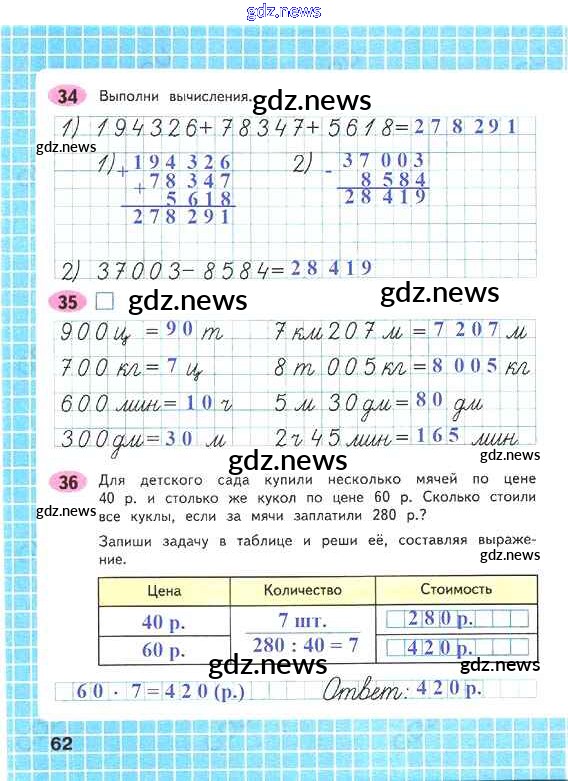 gdz.news
34 Выполни вычисления.
gdz.news
1) 194326+78347+5618=278291
gdz.news
1) +194326 2) -37003
+78347 8584
5618 28419
278291
2) 37003-8584=28419
gdz.news
35 gdz.news
900 ц = 90 т 7 км 207 м = 7207 м
700 кг = 7 ц 8 т 005 кг = 8005 кг
600 мин = 10 ч 5 м 30 дм = 80 дм
300 дм = 30 м 2 ч 45 мин = 165 мин
gdz.news
36 Для детского сада купили несколько мячей по цене
gdz.news
40 р. и столько же кукол по цене 60 р. Сколько стоили
gdz.news
все куклы, если за мячи заплатили 280 р.?
Запиши задачу в таблице и реши её, составляя выраже-
gdz.news
ние.
Цена Количество Стоимость
40 р. 7 шт. 280 р.
60 р. 280 : 40 = 7 420 р.
gdz.news
gdz.news
60 · 7 = 420 (р.) Ответ: 420 р.
gdz.news
62